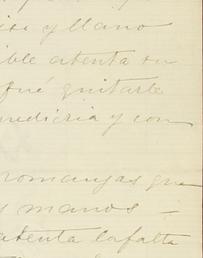 y llano
ible atenta su
qué quitarle
y con
romanzas que
manos —
atenta la falta